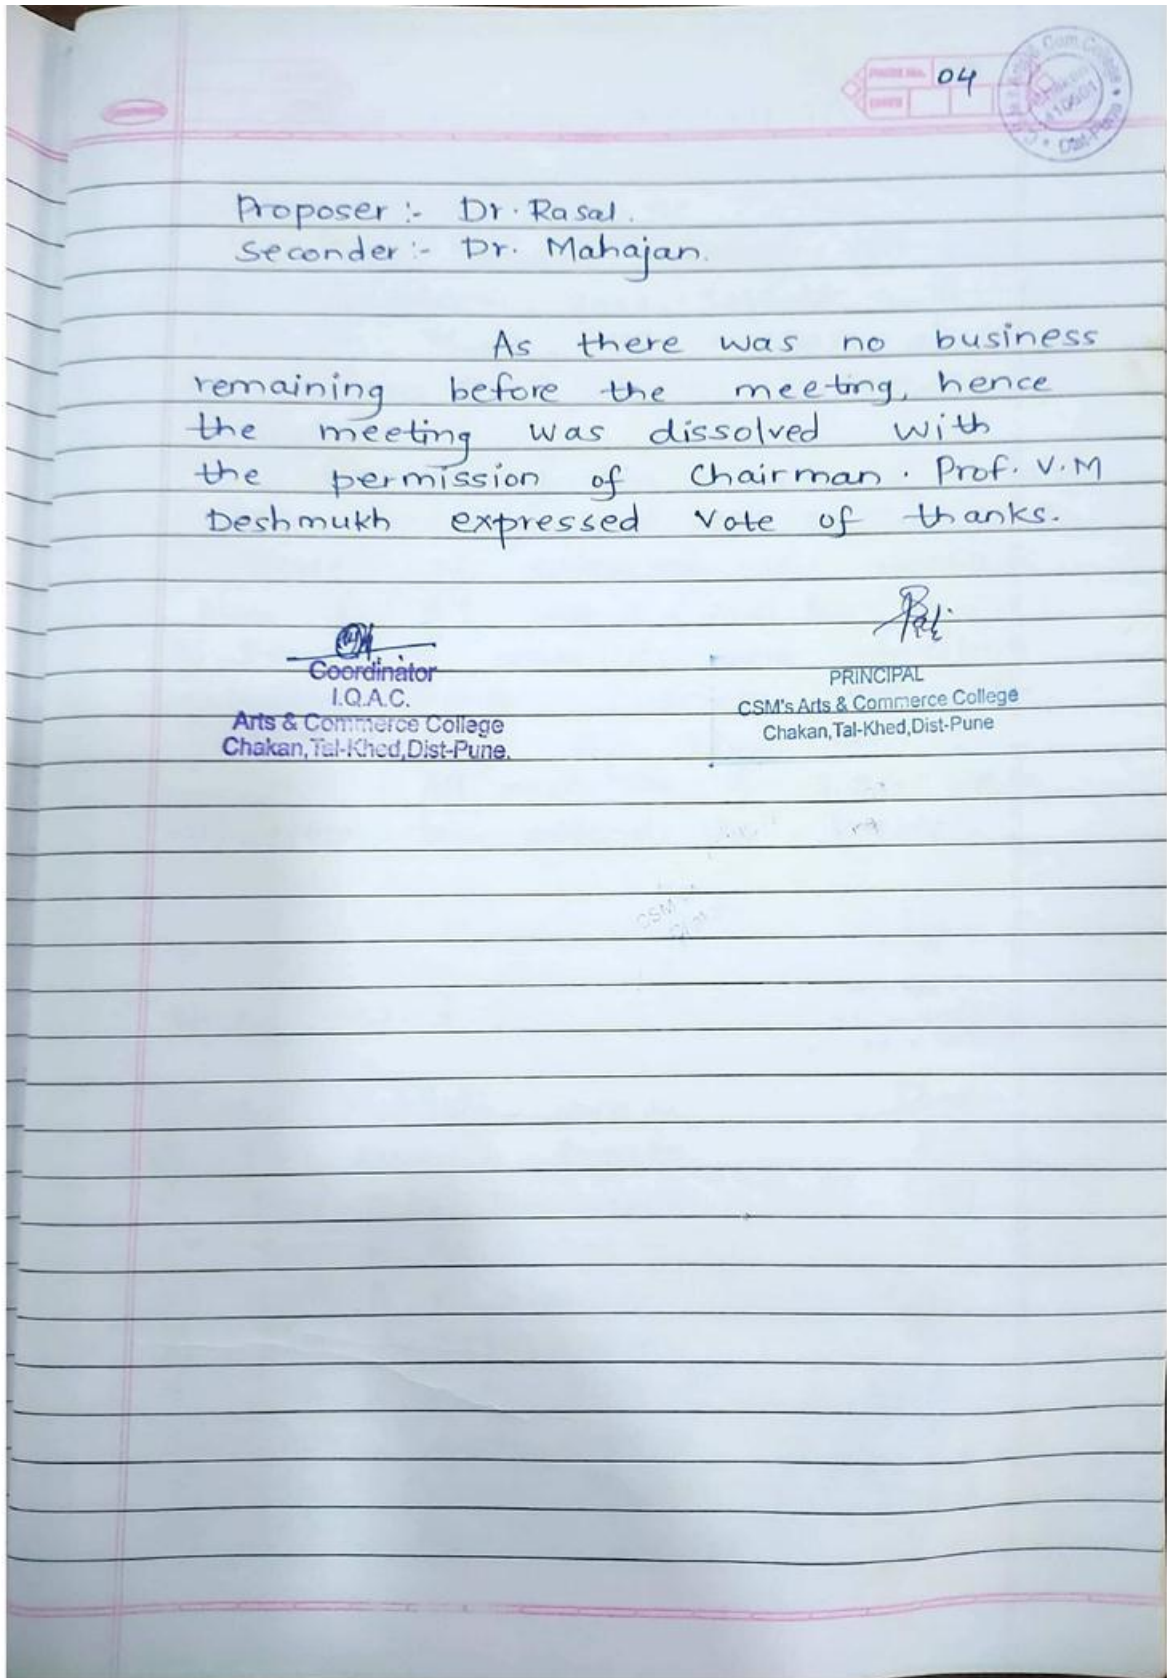 PAGE No. 04
DATE
Proposer :- Dr. Rasal.
Seconder :- Dr. Mahajan.
As there was no business
remaining before the meeting, hence
the meeting was dissolved with
the permission of Chairman. Prof. V.M
Deshmukh expressed Vote of thanks.
Coordinator
I.Q.A.C.
Arts & Commerce College
Chakan, Tal-Khed, Dist-Pune.
PRINCIPAL
CSM's Arts & Commerce College
Chakan, Tal-Khed, Dist-Pune
CSM